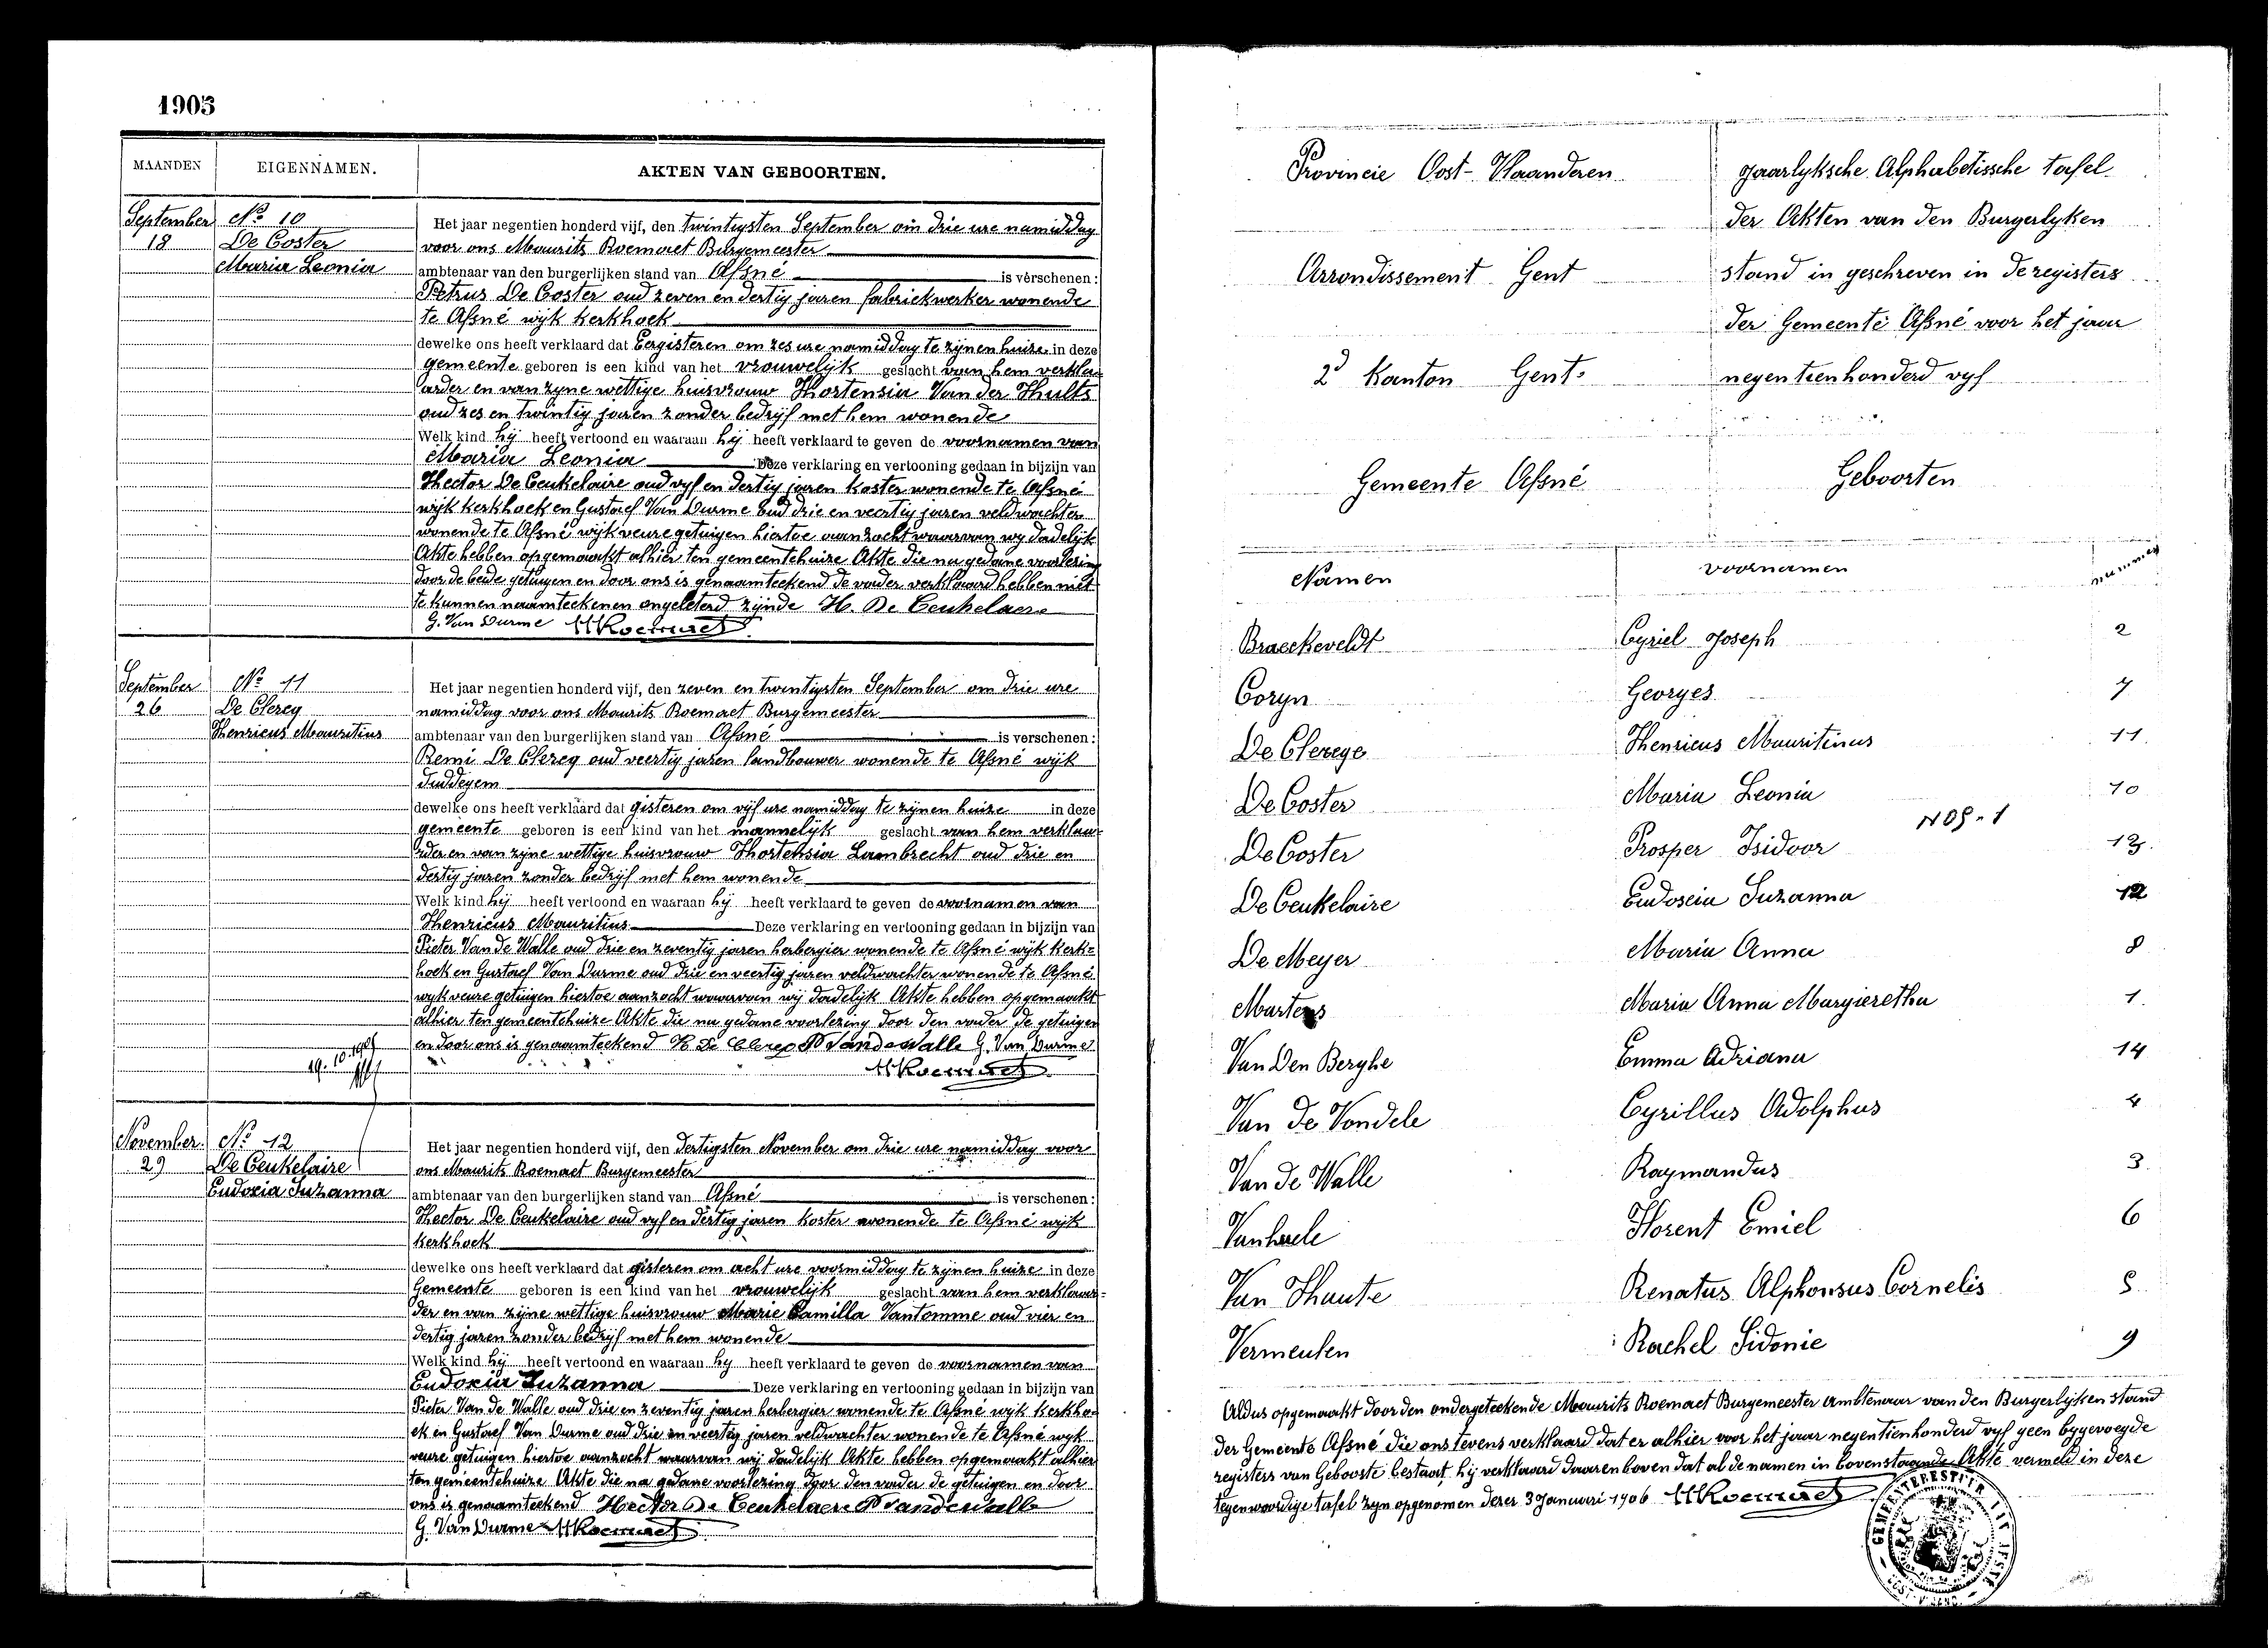 1905
MAANDEN EIGENNAMEN. AKTEN VAN GEBOORTEN.
September No 10
18 De Coster
Maria Leonia
Het jaar negentien honderd vijf, den twintigsten September om drie ure namiddag
voor ons Maurits Roemaet Burgemeester
ambtenaar van den burgerlijken stand van Afsné is verschenen:
Petrus De Coster oud zeven en dertig jaren fabriekwerker wonende
te Afsné wijk kerkhoek
dewelke ons heeft verklaard dat Eergisteren om zes ure namiddag te zijnen huize in deze
gemeente geboren is een kind van het vrouwelijk geslacht van hem verkla-
arder en van zyne wettige huisvrouw Hortensia Van der Hults
oud zes en twintig jaren zonder bedrijf met hem wonende
Welk kind hij heeft vertoond en waaraan hij heeft verklaard te geven de voornamen van
Maria Leonia Deze verklaring en vertooning gedaan in bijzijn van
Hector De Ceukelaire oud vyf en dertig jaren koster wonende te Afsné
wijk kerkhoek en Gustaef Van Durme oud drie en veertig jaren veldwachter
wonende te Afsné wijk veure getuigen hiertoe aanzocht waarvan wy dadelijk
Akte hebben opgemaakt alhier ten gemeentehuize Akte die na gedane voorlezing
door de beide getuigen en door ons is genaamteekend de vader verklaard hebben niet
te kunnen naamteekenen ongeleterd zijnde H. De Ceukelaere
G. Van Durme MRoemaet
September No 11
26 De Clercq
Henricus Mauritius
Het jaar negentien honderd vijf, den zeven en twintigsten September om drie ure
namiddag voor ons Maurits Roemaet Burgemeester
ambtenaar van den burgerlijken stand van Afsné is verschenen:
Remi De Clercq oud veertig jaren landbouwer wonende te Afsné wijk
Duddegem
dewelke ons heeft verklaard dat gisteren om vijf ure namiddag te zijnen huize in deze
gemeente geboren is een kind van het mannelijk geslacht van hem verklaar-
der en van zyne wettige huisvrouw Hortensia Lambrecht oud drie en
dertig jaren zonder bedrijf met hem wonende
Welk kind hij heeft vertoond en waaraan hij heeft verklaard te geven de voornamen van
Henricus Mauritius Deze verklaring en vertooning gedaan in bijzijn van
Pieter Van de Walle oud drie en zeventig jaren herbergier wonende te Afsné wijk kerk-
hoek en Gustaef Van Durme oud drie en veertig jaren veldwachter wonende te Afsné
wyk veure getuigen hiertoe aanzocht waarvan wij dadelijk Akte hebben opgemaakt
alhier ten gemeentehuize Akte die na gedane voorlezing door den vader de getuigen
en door ons is genaamteekend R De Clercq P Vandewalle G. Van Durme
MRoemaet
November No 12
29 De Ceukelaire
Eudoxia Suzanna
Het jaar negentien honderd vijf, den dertigsten November om drie ure namiddag voor
ons Maurits Roemaet Burgemeester
ambtenaar van den burgerlijken stand van Afsné is verschenen:
Hector De Ceukelaire oud vyf en dertig jaren koster wonende te Afsné wijk
kerkhoek
dewelke ons heeft verklaard dat gisteren om acht ure voormiddag te zijnen huize in deze
Gemeente geboren is een kind van het vrouwelijk geslacht van hem verklaar-
der en van zijne wettige huisvrouw Marie Camilla Vantomme oud vier en
dertig jaren zonder bedrijf met hem wonende
Welk kind hij heeft vertoond en waaraan hy heeft verklaard te geven de voornamen van
Eudoxia Suzanna Deze verklaring en vertooning gedaan in bijzijn van
Pieter Van de Walle oud drie en zeventig jaren herbergier wonende te Afsné wyk kerkho-
ek en Gustaef Van Durme oud drie en veertig jaren veldwachter wonende te Afsné wyk
veure getuigen hiertoe aanzocht waarvan wij dadelijk Akte hebben opgemaakt alhier
ten gemeentehuize Akte die na gedane voorlezing door den vader de getuigen en door
ons is genaamteekend Hector De Ceukelaere P Vandewalle
G. Van Durme MRoemaet
Provincie Oost-Vlaanderen Jaarlyksche Alphabetissche tafel
der Akten van den Burgerlyken
Arrondissement Gent stand in geschreven in de registers
der Gemeente Afsné voor het jaar
2d Kanton Gent. negentienhonderd vyf
Gemeente Afsné Geboorten
Namen voornamen nummer
Braeckeveldt Cyriel Joseph 2
Coryn Georges 7
De Clercqe Henricus Mauritinus 11
De Coster Maria Leonia 10
De Coster Prosper Isidoor 13
De Ceukelaire Eudoscia Suzanna 12
De Meyer Maria Anna 8
Martens Maria Anna Margieretha 1
Van Den Berghe Emma Adriana 14
Van de Vondele Cyrillus Adolphus 4
Van de Walle Raymandus 3
Vanhaele Florent Emiel 6
Van Haute Renatus Alphonsus Cornelis 5
Vermeulen Rachel Sidonie 9
Aldus opgemaakt door den ondergeteekende Maurits Roemaet Burgemeester ambtenaar van den Burgerlyken stand
der Gemeente Afsné die ons tevens verklaard dat er alhier voor het jaar negentienhonderd vyf geen bygevoegde
registers van Geboorte bestaat, hij verklaard daarenboven dat al de namen in bovenstaande Akte vermeld in deze
tegenwoordige tafel zyn opgenomen dezer 3 Januari 1906 MRoemaet